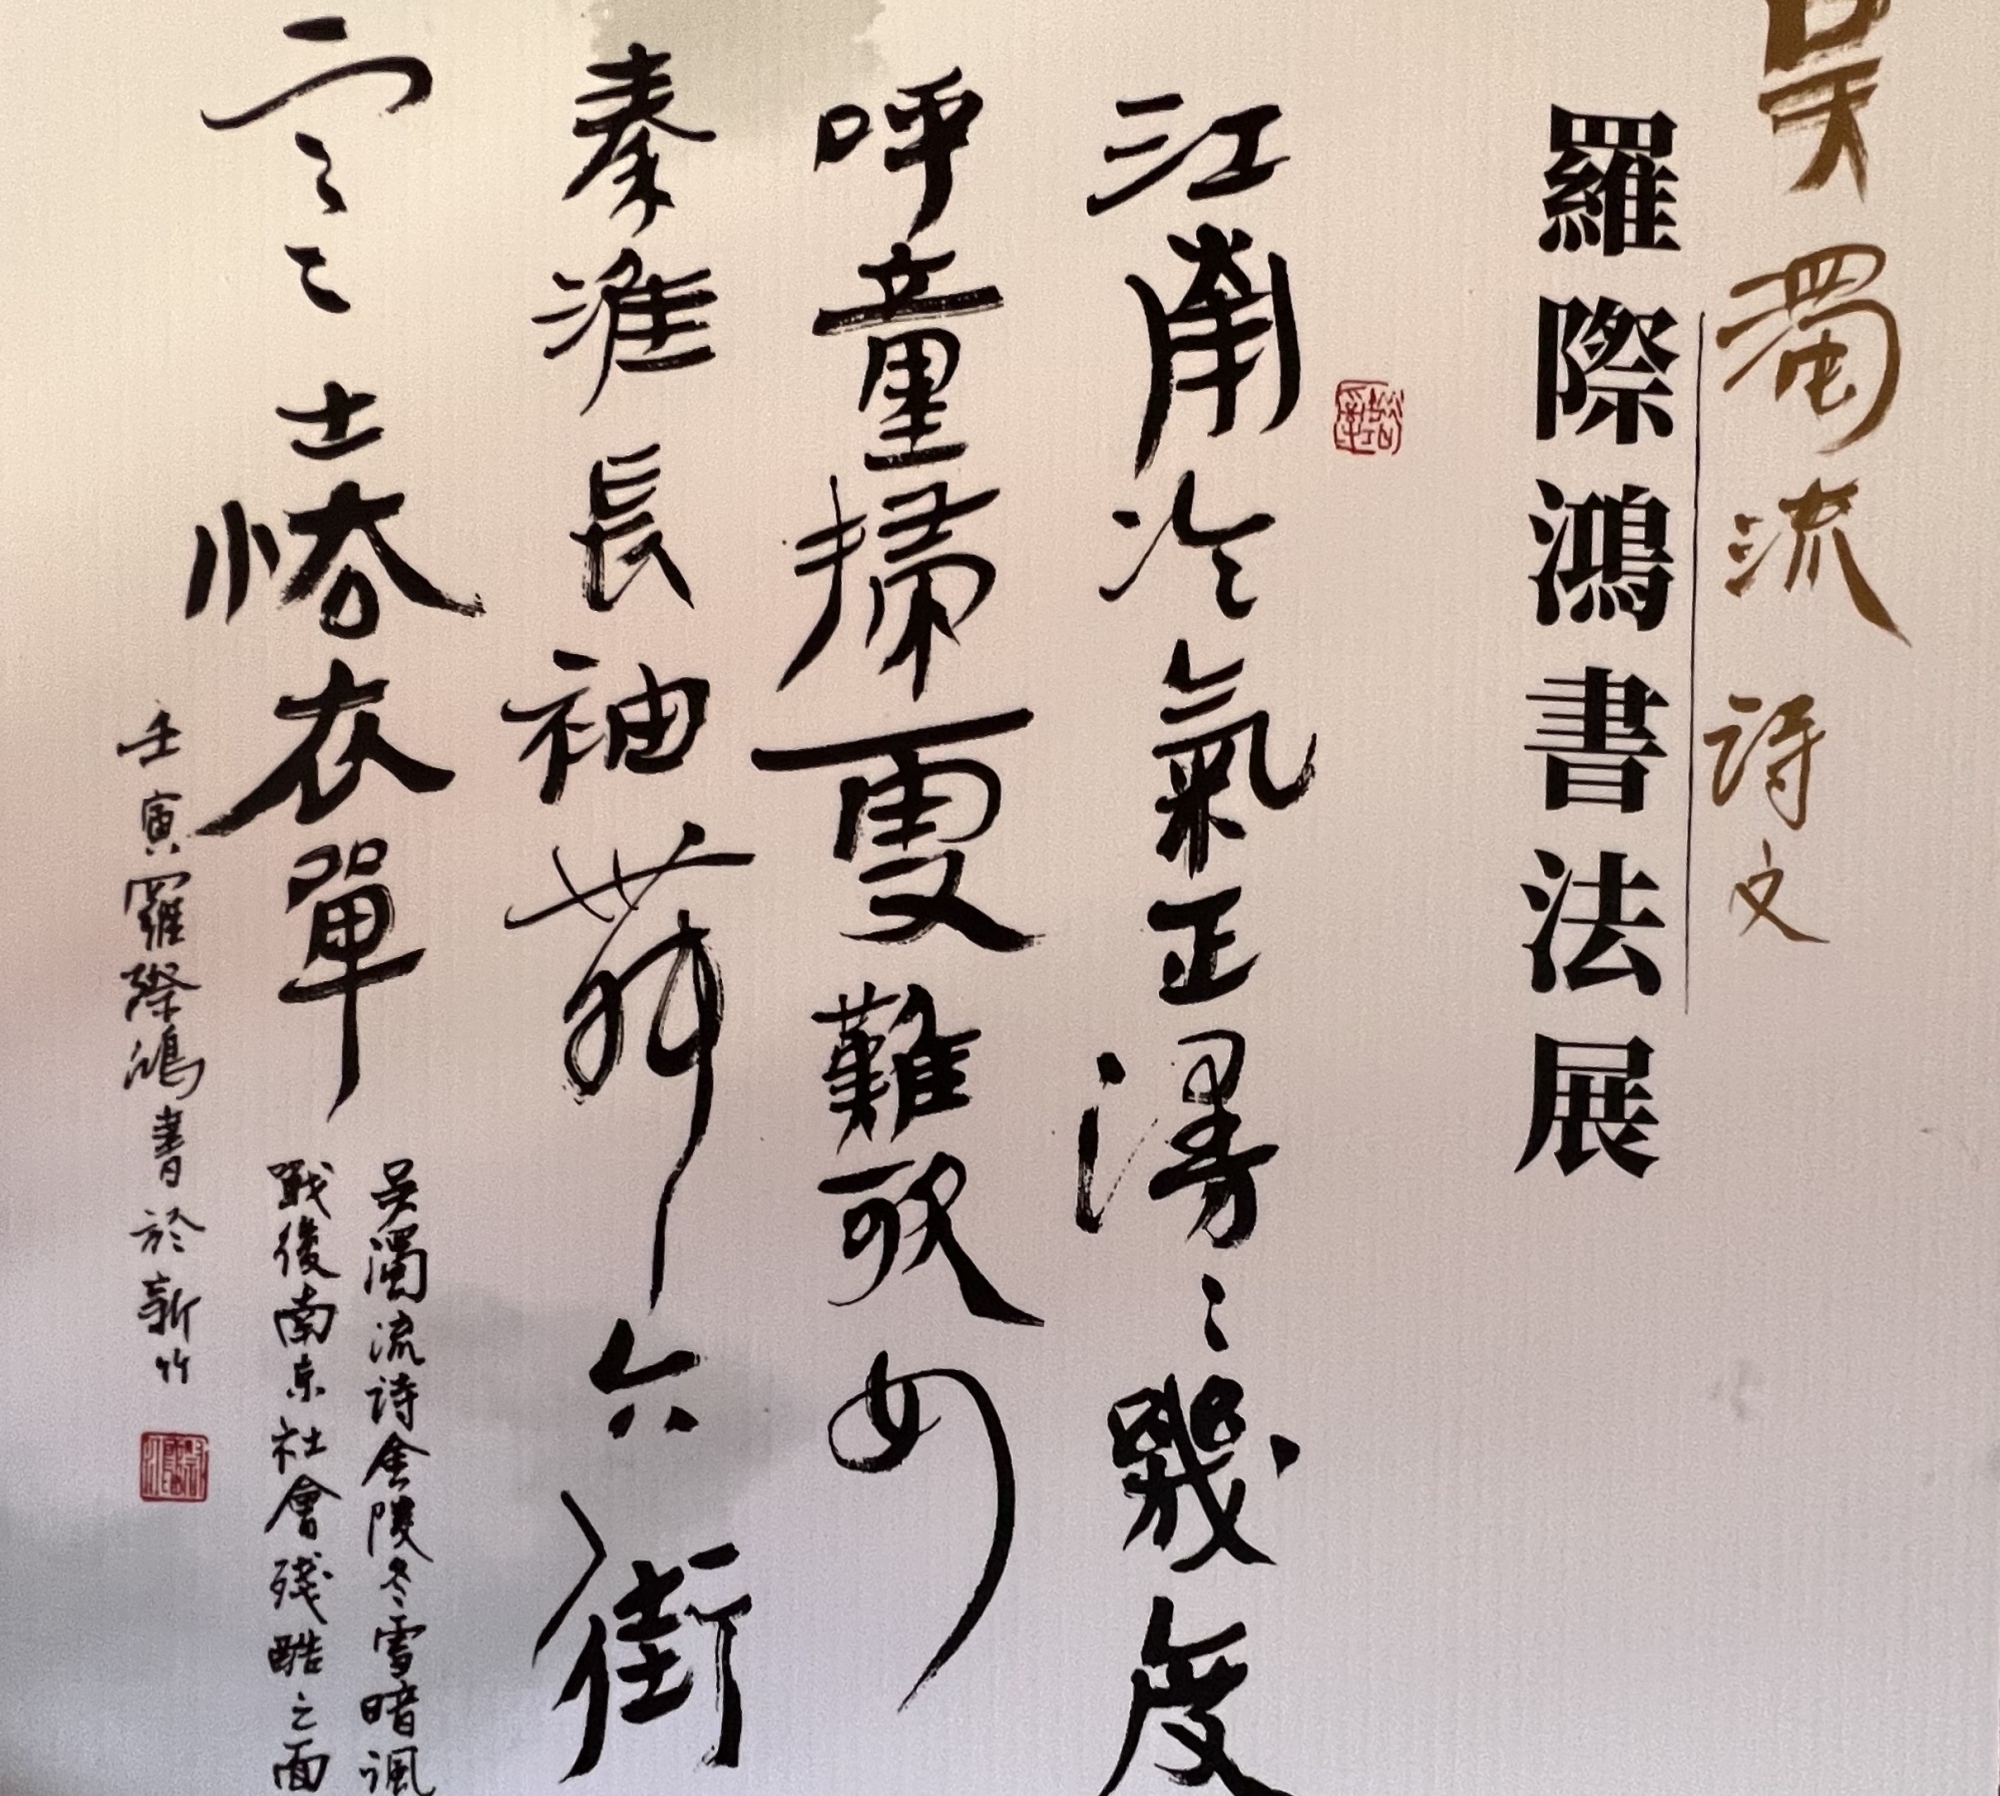 吳濁流詩文
羅際鴻書法展
江南冷氣正漫〻幾度
呼童掃雪難歌女
秦淮長袖舞六街
寒士怯衣單
吳濁流詩金陵冬雪暗諷
戰後南京社會殘酷之面
壬寅羅際鴻書於新竹